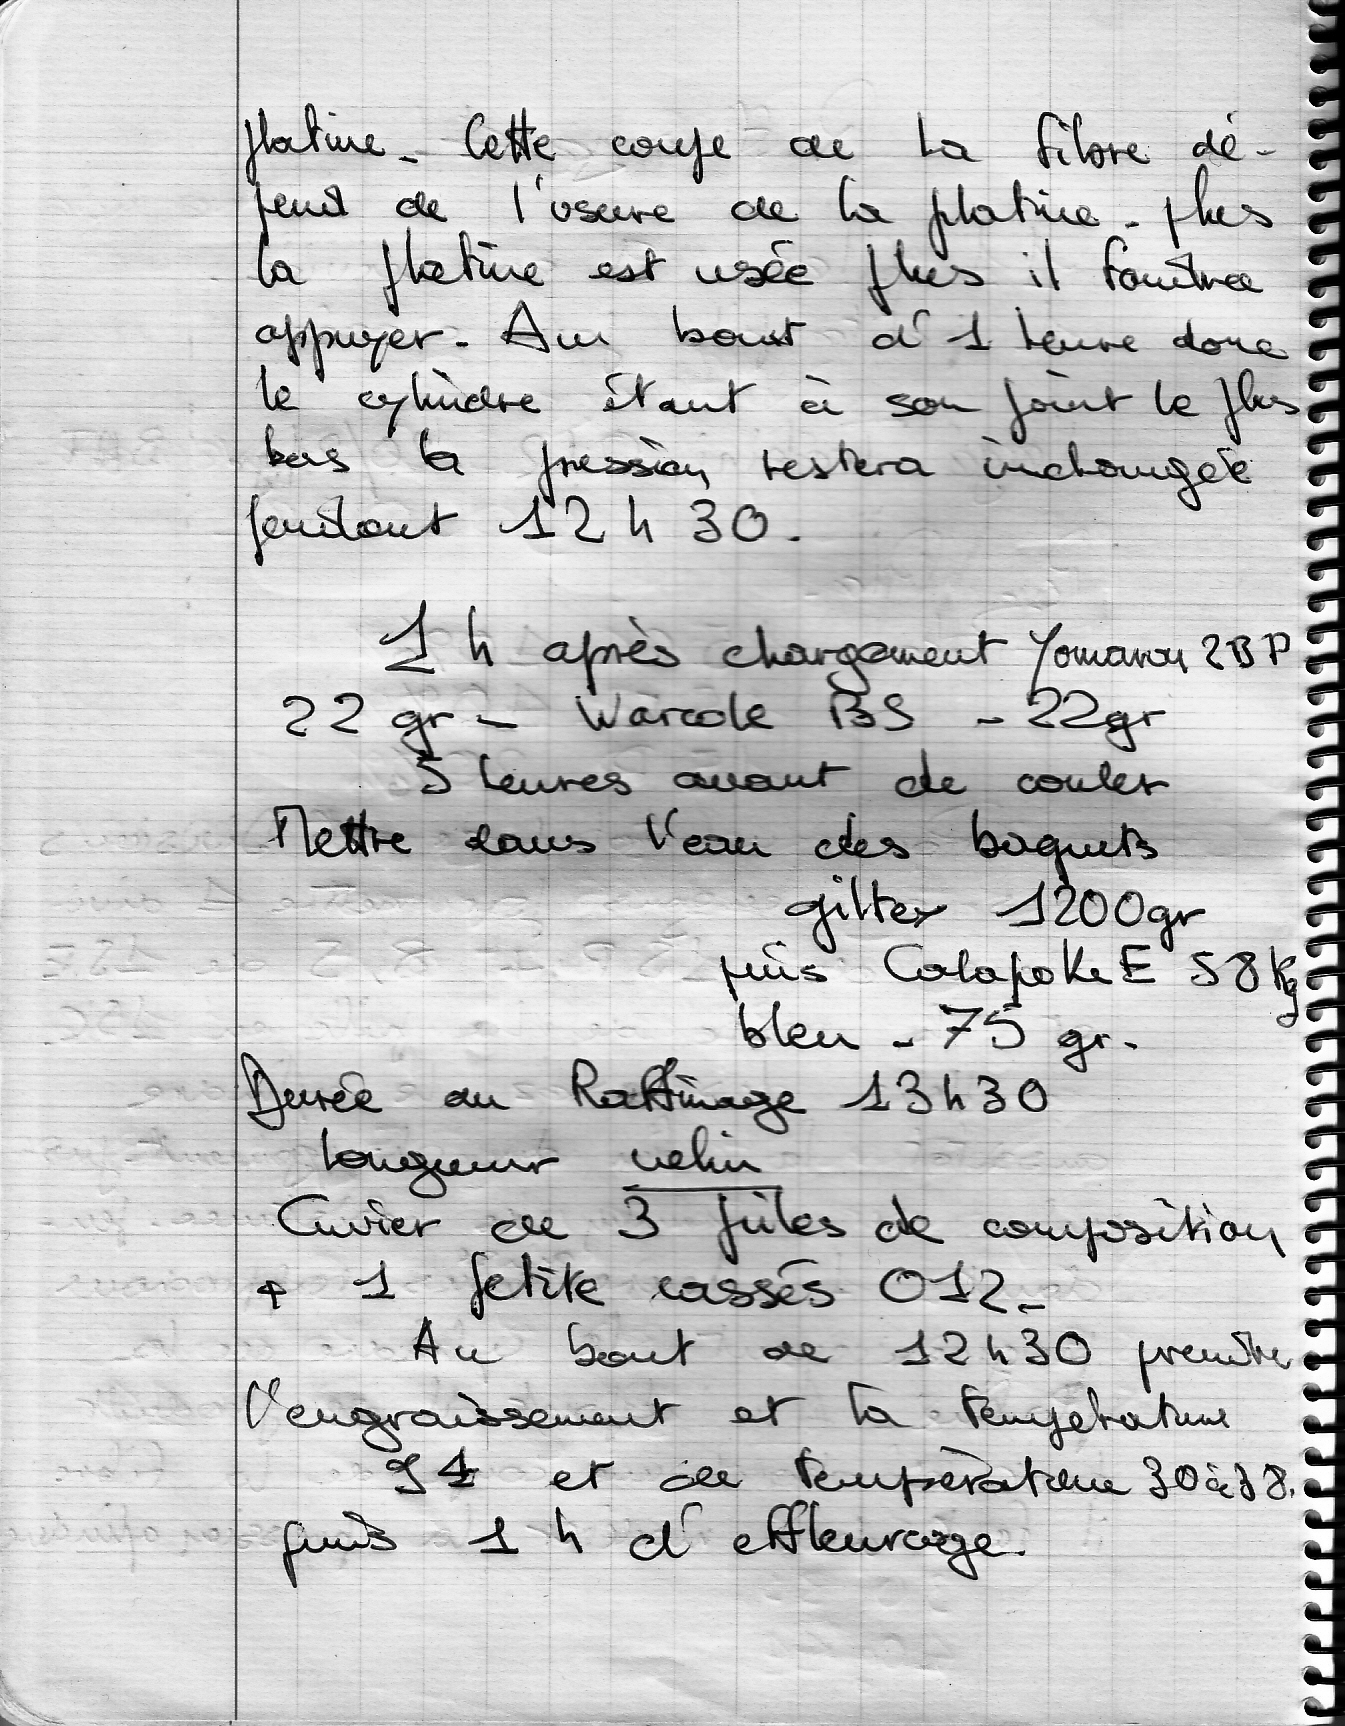 platine - Cette coupe de la fibre dé-
pend de l'usure de la platine - plus
la platine est usée plus il faudra
appuyer - Au bout d'1 heure donc
le cylindre étant à son point le plus
bas la pression restera inchangée
pendant 12 h 30.
1 h après chargement 2BP
22 gr - BS - 22gr
5 heures avant de couler
Mettre dans l'eau des baquets
giltex 1200gr
puis E 58 kg
bleu - 75 gr.
Durée du Raffinage 13h30
longueur velin
Cuvier de 3 piles de composition
+ 1 petite cassés 012 -
Au bout de 12h30 prendre
l'engraissement et la température
et de température 30 à 38.
puis 1 h d'effleurage.